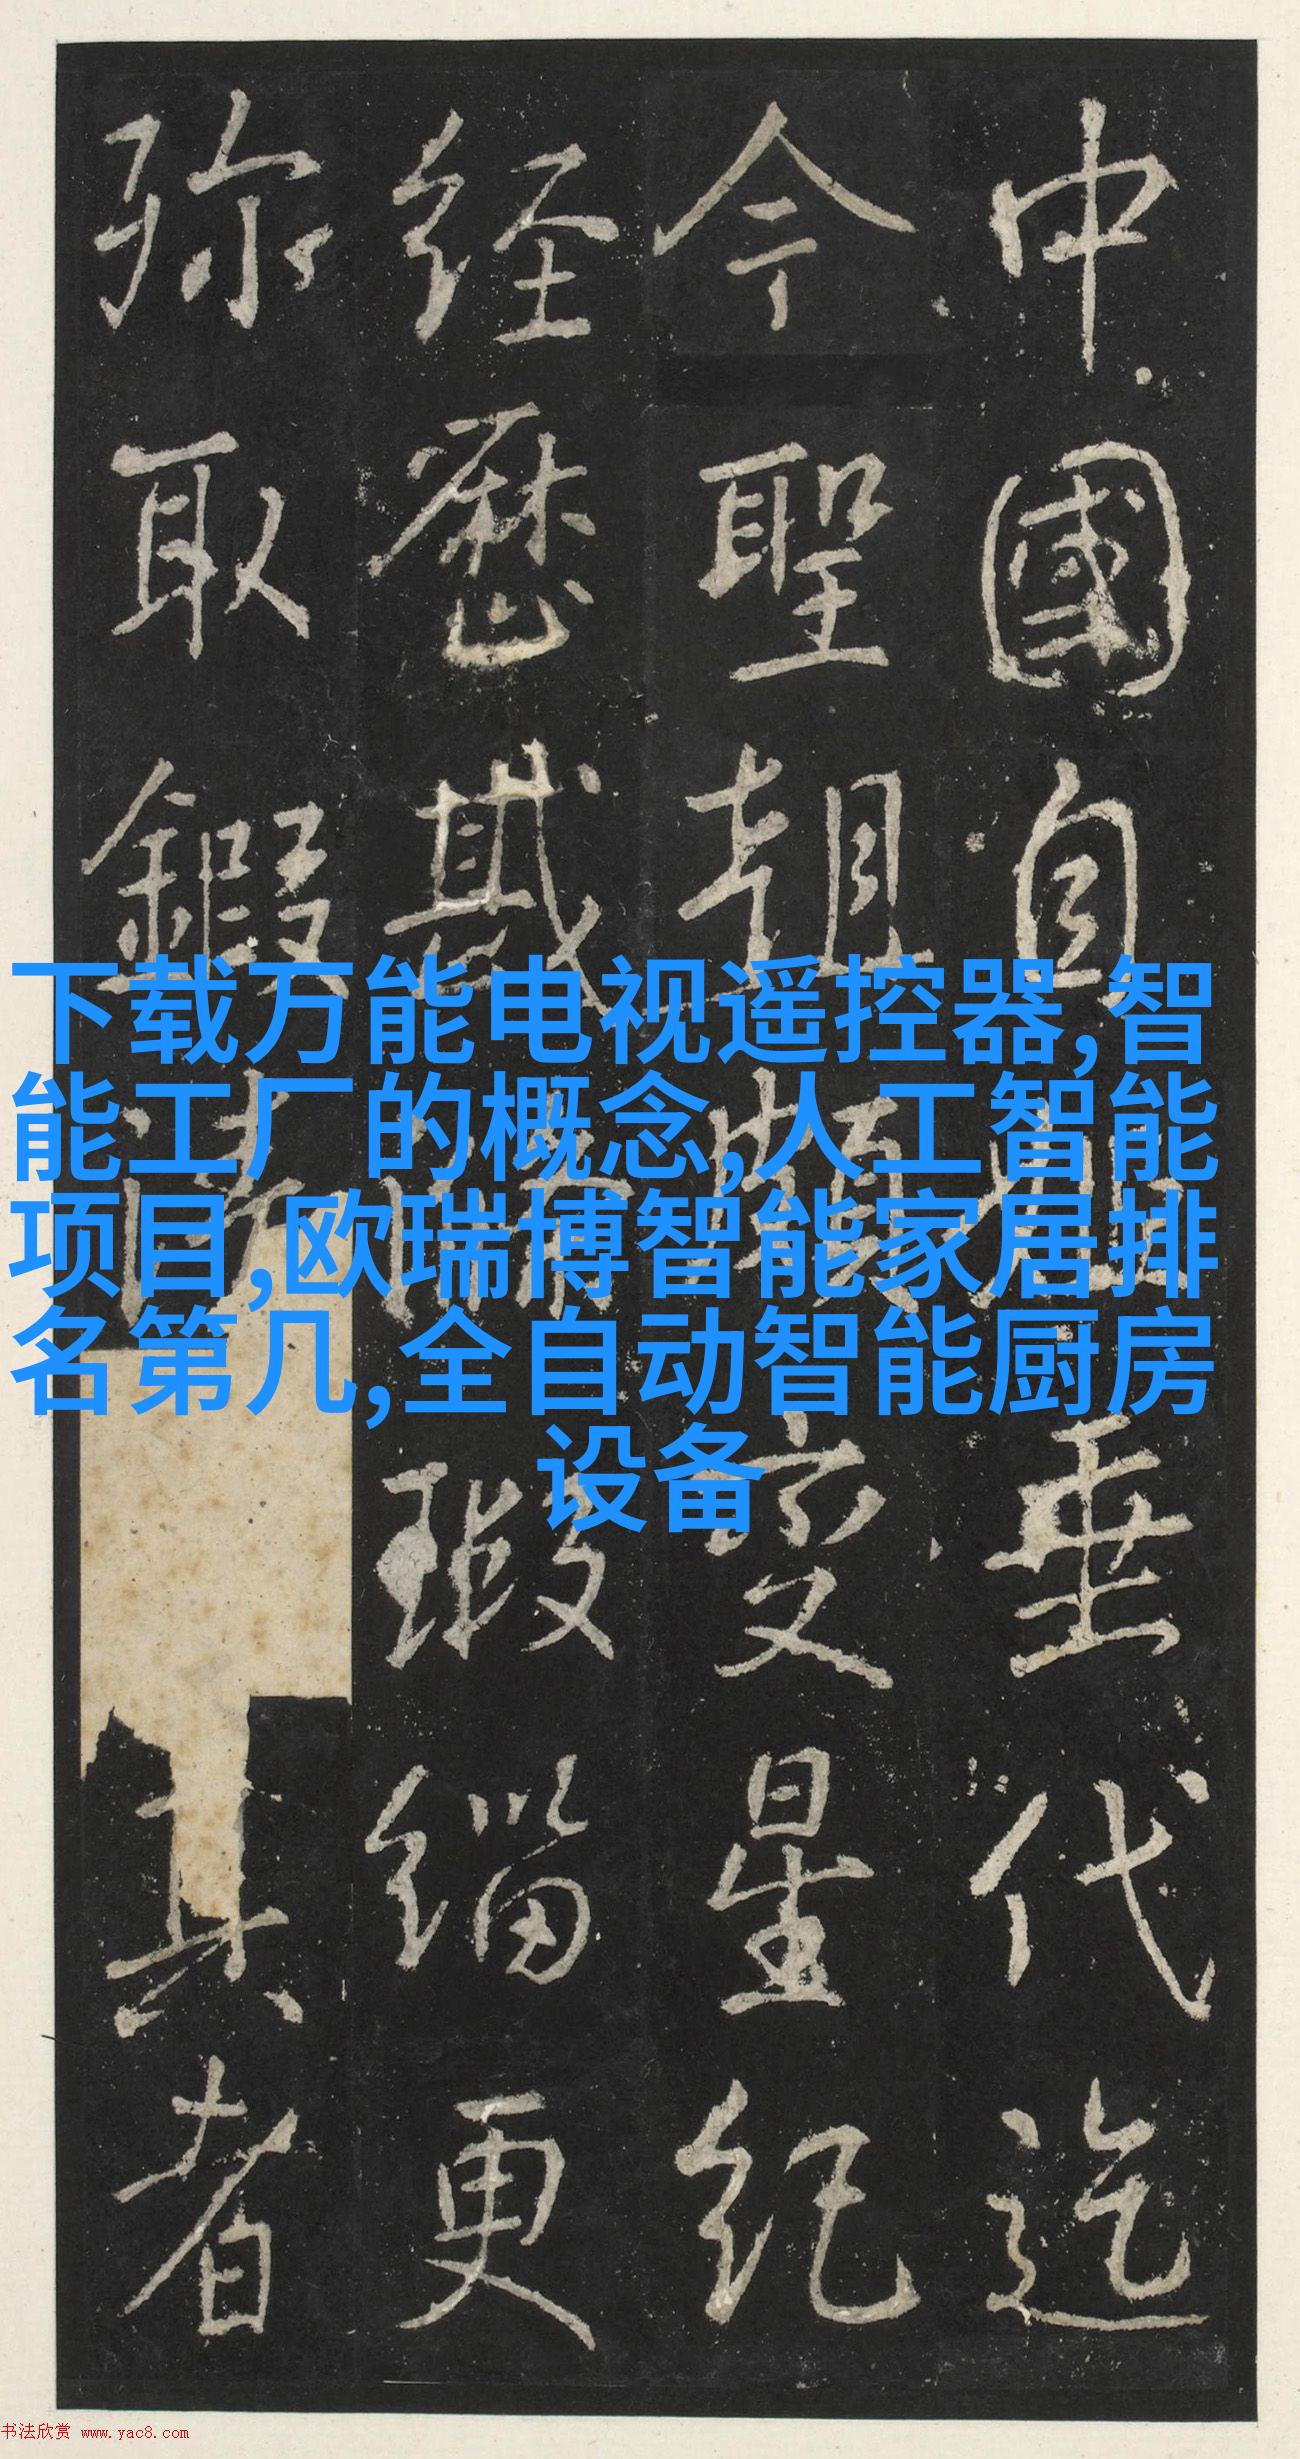 下载万能电视遥控器,智
能工厂的概念,人工智能
项目,欧瑞博智能家居排
名第几,全自动智能厨房
设备
中國自垂代迄
今聖朝星紀
经歷瑕緇更
弥取鍜真者
书法欣赏 www.yac8.com